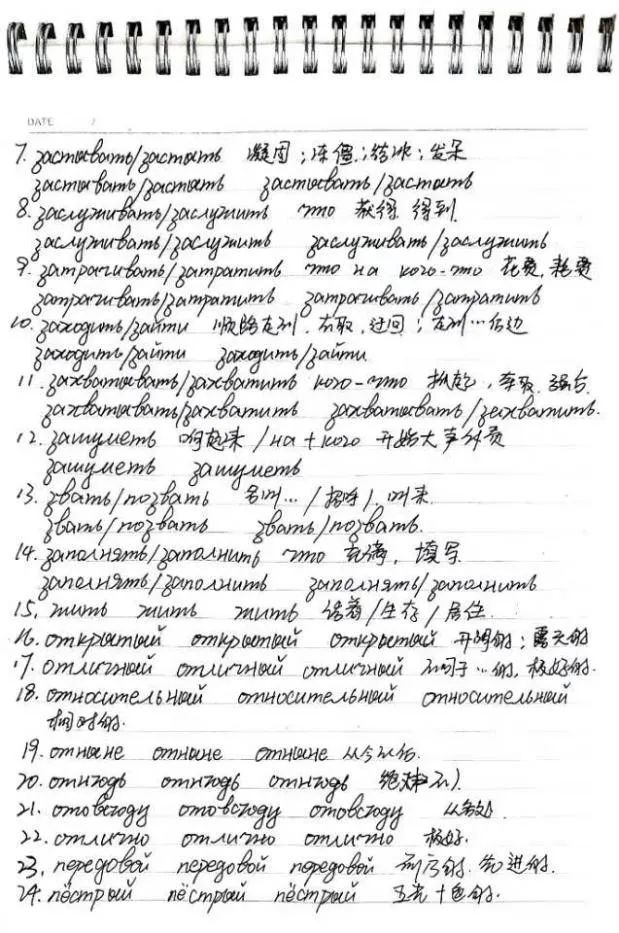 DATE /
7. застывать/застыть 凝固;冻僵;结冰;发呆
застывать/застыть застывать/застыть
8. заслуживать/заслужить что 获得,得到
заслуживать/заслужить заслуживать/заслужить
9. затрачивать/затратить что на кого-что 花费,耗费
затрачивать/затратить затрачивать/затратить
10. заходить/зайти 顺路走到,去取,迂回;走到…后边
заходить/зайти заходить/зайти
11. захватывать/захватить кого-что 抓起,夺取,强占
захватывать/захватить захватывать/захватить.
12. зашуметь 响起来/на+кого 开始大声斥责
зашуметь зашуметь
13. звать/позвать 名叫…/招呼/,叫来
звать/позвать звать/позвать.
14. заполнять/заполнить что 充满,填写
заполнять/заполнить заполнять/заполнить
15. жить жить жить 活着/生存/居住
16. открытый открытый открытый 开朗的;露天的
17. отличный отличный отличный 不同于…的,极好的.
18. относительный относительный относительный
相对的.
19. отныне отныне отныне 从今以后.
20. отнюдь отнюдь отнюдь 绝对(不)
21. отовсюду отовсюду отовсюду 从各处
22. отлично отлично отлично 极好.
23. передовой передовой передовой 前方的,先进的.
24. пёстрый пёстрый пёстрый 五光十色的.